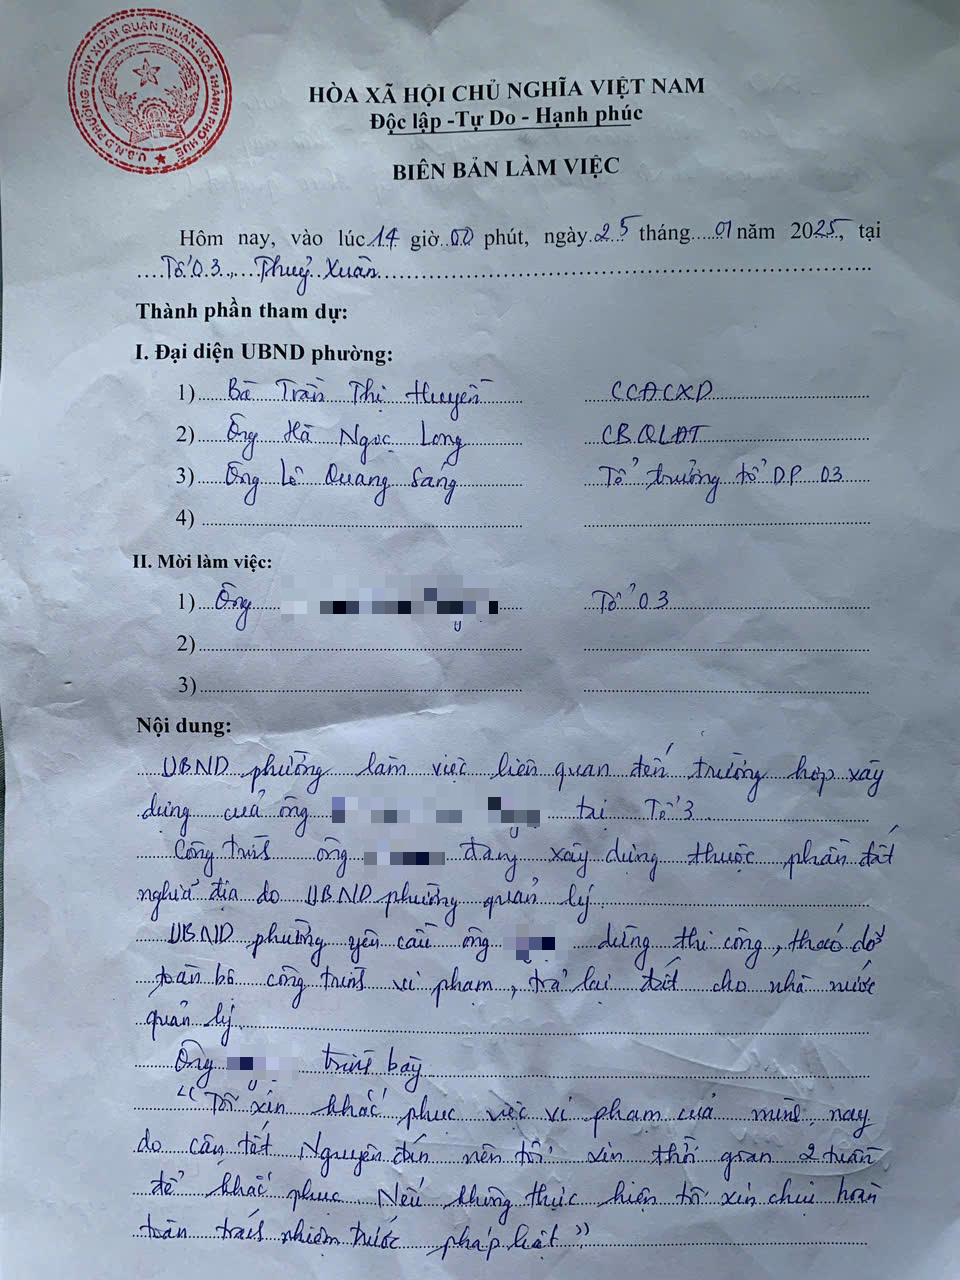 U.B.N.D PHƯỜNG THỦY XUÂN QUẬN THUẬN HOÁ THÀNH PHỐ HUẾ
HÒA XÃ HỘI CHỦ NGHĨA VIỆT NAM
Độc lập -Tự Do - Hạnh phúc
BIÊN BẢN LÀM VIỆC
Hôm nay, vào lúc 14 giờ 00 phút, ngày 25 tháng 01 năm 2025, tại
Tổ 03, Thuỷ Xuân
Thành phần tham dự:
I. Đại diện UBND phường:
1) Bà Trần Thị Huyền CCĐCXD
2) Ông Hà Ngọc Long CB QLĐT
3) Ông Lê Quang Sáng Tổ trưởng tổ DP 03
4)
II. Mời làm việc:
1) Ông Tổ 03
2)
3)
Nội dung:
UBND phường làm việc liên quan đến trường hợp xây
dựng của ông tại Tổ 3
Công trình ông đang xây dựng thuộc phần đất
nghĩa địa do UBND phường quản lý
UBND phường yêu cầu ông dừng thi công, tháo dỡ
toàn bộ công trình vi phạm, trả lại đất cho nhà nước
quản lý
Ông trình bày
"Tôi xin khắc phục việc vi phạm của mình, nay
do cận tết Nguyên đán nên tôi xin thời gian 2 tuần
để khắc phục. Nếu không thực hiện tôi xin chịu hoàn
toàn trách nhiệm trước pháp luật"